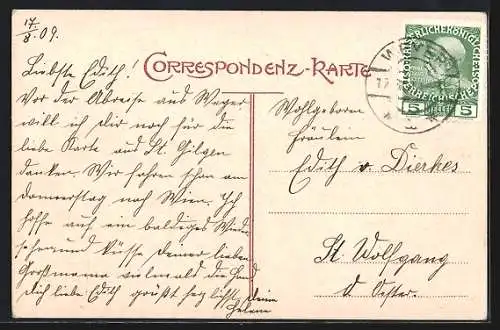 17/8. 09.
Liebste Edith!
Vor der Abreise aus Weyer
will ich dir noch für die
liebe Karte aus St. Gilgen
danken. Wir fahren schon am
Donnerstag nach Wien. Ich
hoffe auf ein baldiges Wieder
sehen und küsse deiner lieben
Großmama vielmals die Hand
dich liebe Edith grüßt herzlichst deine
Helene
CORRESPONDENZ-KARTE
WEYER
17
5 5
Wohlgeboren
Fräulein
Edith v. Dierkes
St. Wolfgang
Oester.